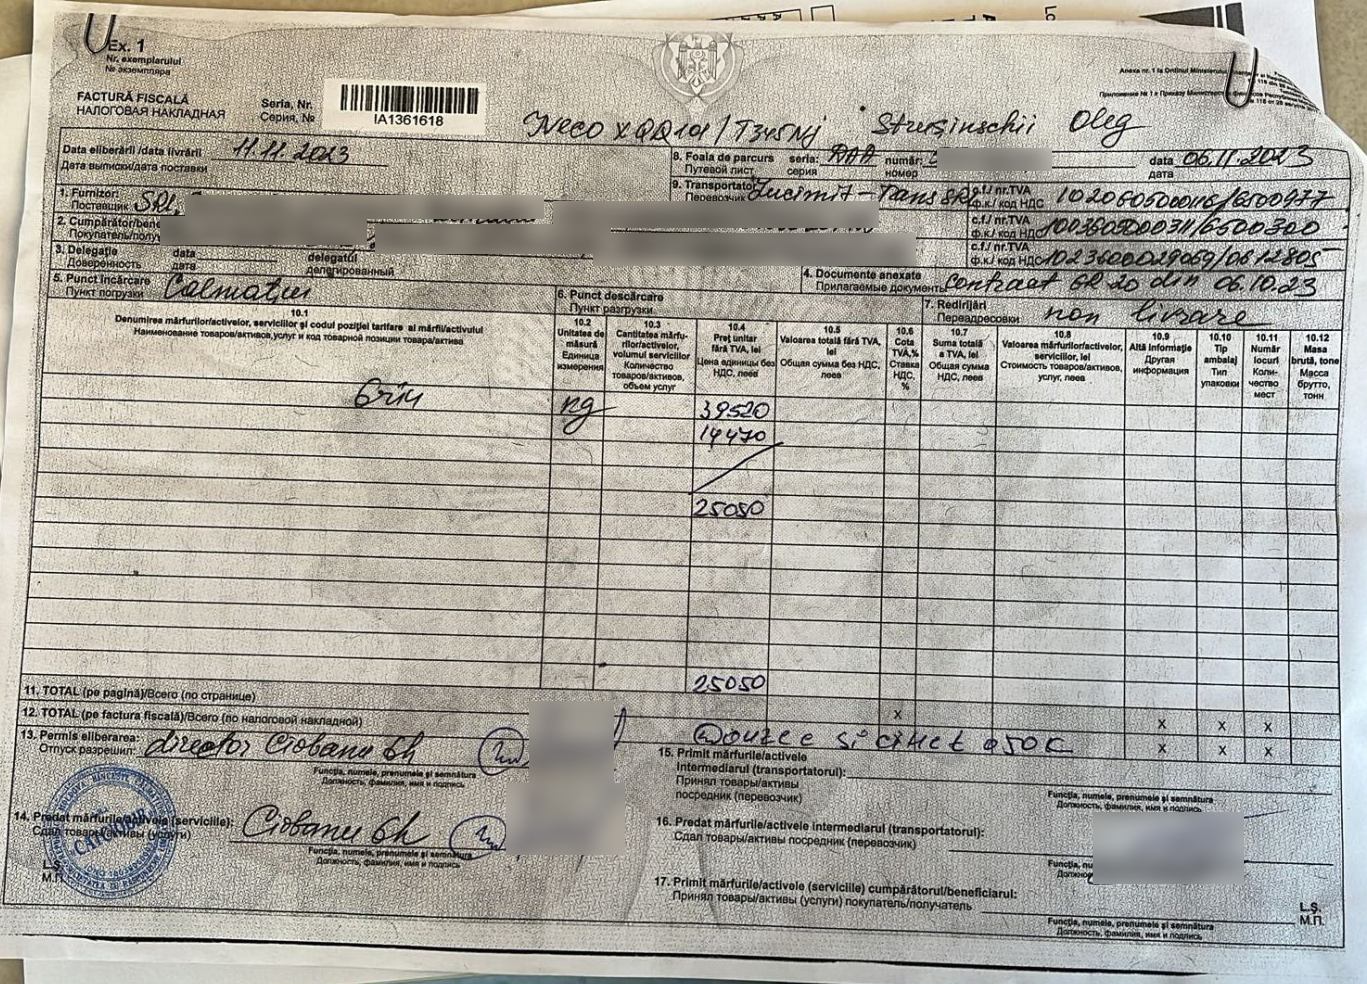 Ex. 1
Nr. exemplarului
№ экземпляра
FACTURĂ FISCALĂ
НАЛОГОВАЯ НАКЛАДНАЯ
Seria, Nr.
Серия, №
IA1361618
Iveco XQQ101/T345NJ Strușinschii Oleg
Data eliberării /data livrării 11.11.2023
Дата выписки/дата поставки
8. Foaia de parcurs seria: AAA număr: data 06.11.2023
Путевой лист серия номер дата
1. Furnizor: SRL
Поставщик
9. Transportator Lucimit-Trans SRL c.f./ nr.TVA
Перевозчик ф.к./ код НДС
2. Cumpărător/bene
Покупатель/полу
c.f./ nr.TVA
ф.к./ код НДС 1003605000311/6500300
3. Delegație data delegatul
Доверенность дата делегированный
c.f./ nr.TVA
ф.к./ код НДС
4. Documente anexate
Прилагаемые документы contract GR 20 din 06.10.23
5. Punct încărcare Calmațui
Пункт погрузки
6. Punct descărcare
Пункт разгрузки
7. Redirijări
Переадресовки non livrare
10.1
Denumirea mărfurilor/activelor, serviciilor și codul poziției tarifare al mărfii/activului
Наименование товаров/активов,услуг и код товарной позиции товара/актива
10.2
Unitatea de
măsură
Единица
измерения
10.3
Cantitatea mărfu-
rilor/activelor,
volumul serviciilor
Количество
товаров/активов,
объем услуг
10.4
Preț unitar
fără TVA, lei
Цена единицы без
НДС, леев
10.5
Valoarea totală fără TVA,
lei
Общая сумма без НДС,
леев
10.6
Cota
TVA,%
Ставка
НДС,
%
10.7
Suma totală
a TVA, lei
Общая сумма
НДС, леев
10.8
Valoarea mărfurilor/activelor,
serviciilor, lei
Стоимость товаров/активов,
услуг, леев
10.9
Altă informație
Другая
информация
10.10
Tip
ambalaj
Тип
упаковки
10.11
Număr
locuri
Коли-
чество
мест
10.12
Masa
brută, tone
Масса
брутто,
тонн
Grîu kg 39520
14470
25050
11. TOTAL (pe pagină)/Всего (по странице) 25050
12. TOTAL (pe factura fiscală)/Всего (по налоговой накладной) x x x x
x x x
13. Permis eliberarea: director Ciobanu Gh
Отпуск разрешил:
Funcția, numele, prenumele și semnătura
Должность, фамилия, имя и подпись
15. Primit mărfurile/activele
intermediarul (transportatorul):
Принял товары/активы
посредник (перевозчик)
Funcția, numele, prenumele și semnătura
Должность, фамилия, имя и подпись
14. Predat mărfurile/activele (serviciile): Ciobanu Gh
Сдал товары/активы (услуги)
Funcția, numele, prenumele și semnătura
Должность, фамилия, имя и подпись
16. Predat mărfurile/activele intermediarul (transportatorul):
Сдал товары/активы посредник (перевозчик)
17. Primit mărfurile/activele (serviciile) cumpărătorul/beneficiarul:
Принял товары/активы (услуги) покупатель/получатель
Funcția, numele, prenumele și semnătura
Должность, фамилия, имя и подпись
L.Ș.
М.П.
L.Ș.
М.П.